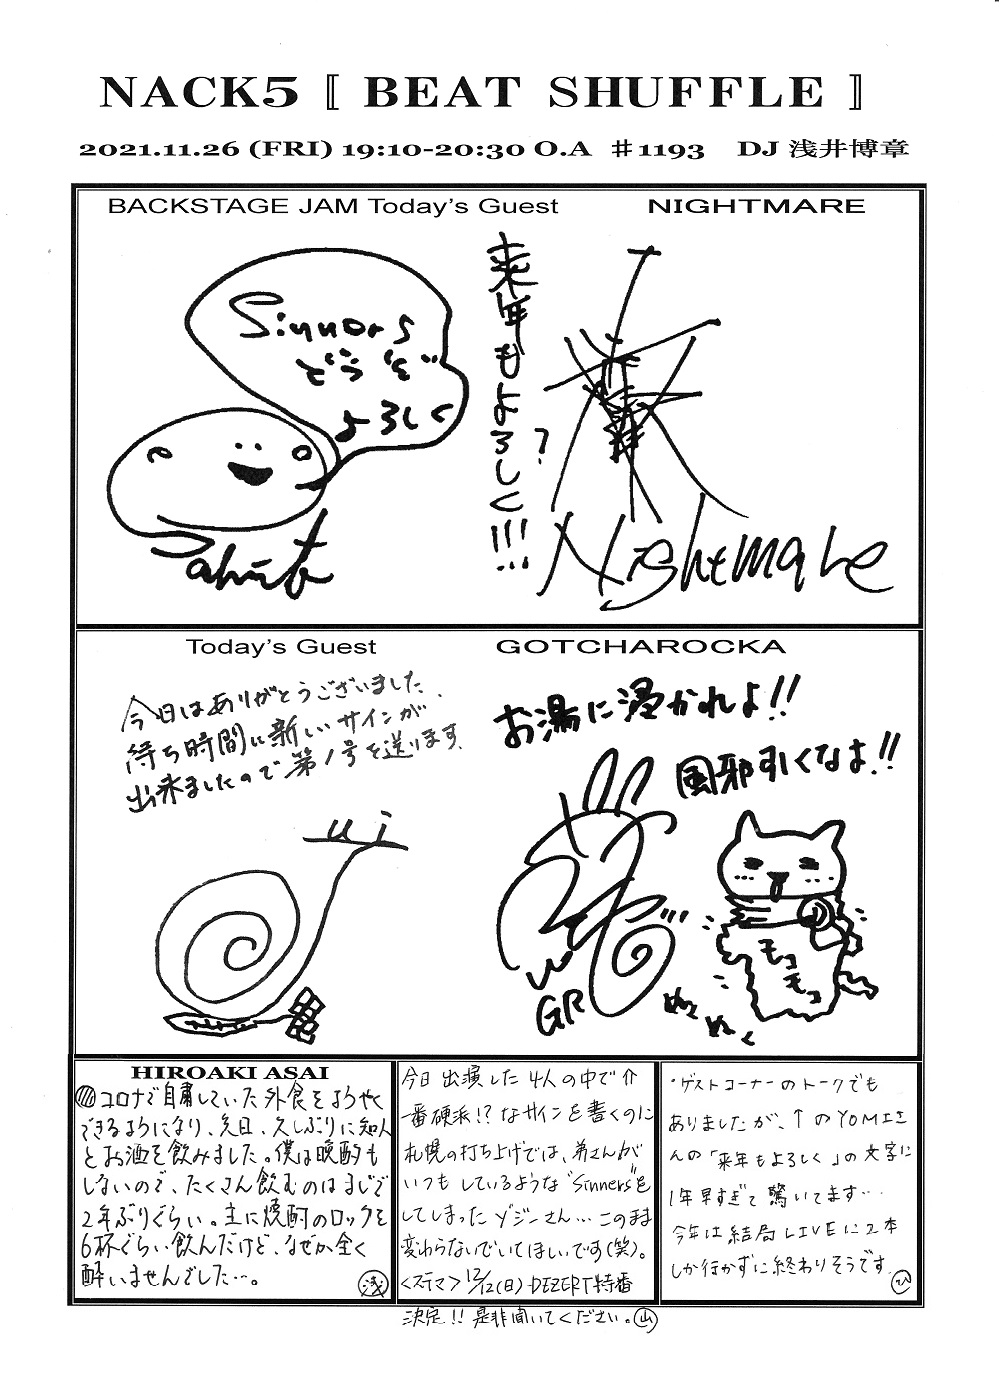 NACK5〚 BEAT SHUFFLE 〛
2021.11.26 (FRI) 19:10-20:30 O.A ♯1193 DJ 浅井博章
BACKSTAGE JAM Today's Guest NIGHTMARE
Sinners
どうぞ
よろしく
来年もよろしく!!!
?
Nightmare
Today's Guest GOTCHAROCKA
今日はありがとうございました。
待ち時間に新しいサインが
出来ましたので第1号を送ります。
jui
お湯に浸かれよ!!
風邪引くなよ!!
GR
モコ
モコ
ぬく
ぬく
HIROAKI ASAI
コロナで自粛していた外食をようやく
できるようになり、先日、久しぶりに知人
とお酒を飲みました。僕は晩酌も
しないので、たくさん飲むのはまじで
2年ぶりぐらい。主に焼酎のロックを
6杯ぐらい飲んだけど、なぜか全く
酔いませんでした…。
浅
今日出演した4人の中で
一番硬派!?なサインを書くのに
札幌の打ち上げでは、弟さんが
いつもしているような"Sinners"を
してしまったゾジーさん…このまま
変わらないでいてほしいです(笑)。
<ステマ> 12/12(日) DEZERT特番
決定!! 是非聞いてください。山
・ゲストコーナーのトークでも
ありましたが、↑のYOMIさ
んの「来年もよろしく」の文字に
1年早すぎて驚いてます…
今年は結局LIVEに2本
しか行かずに終わりそうです。
ひ